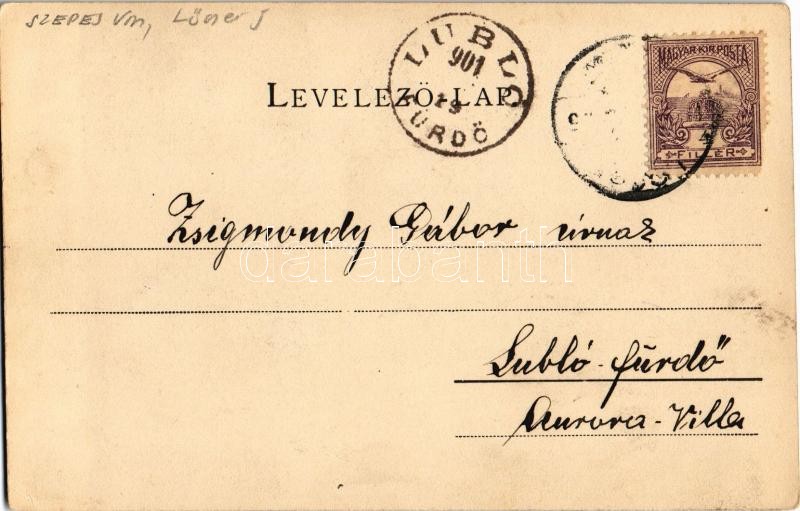 SZEPES Vm,
LUBLÓ
901
19
FÜRDŐ
MAGYAR KIR. POSTA
FILLÉR
LEVELEZŐ-LAP.
Zsigmondy Gábor úrnak
darabanth
Lubló-fürdő
Aurora-Villa